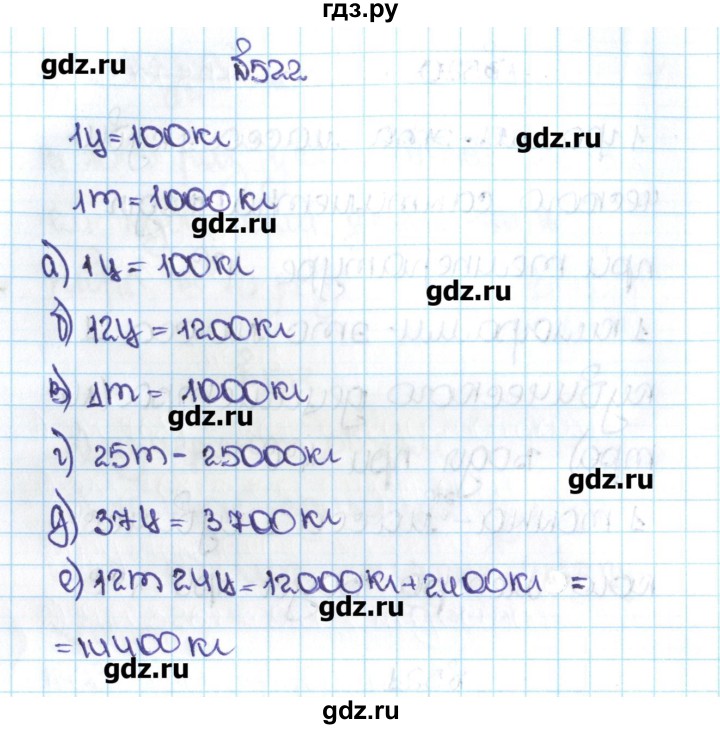 гдз.ру
gdz.ru
№522
1ц = 100кг
gdz.ru
1т = 1000кг
gdz.ru
а) 1ц = 100кг
gdz.ru
б) 12ц = 1200кг
в) 1т = 1000кг
gdz.ru
г) 25т - 25000кг
gdz.ru
д) 37ц = 3700кг
е) 12т 24ц = 12000кг + 2400кг =
gdz.ru
= 14400кг
gdz.ru
gdz.ru